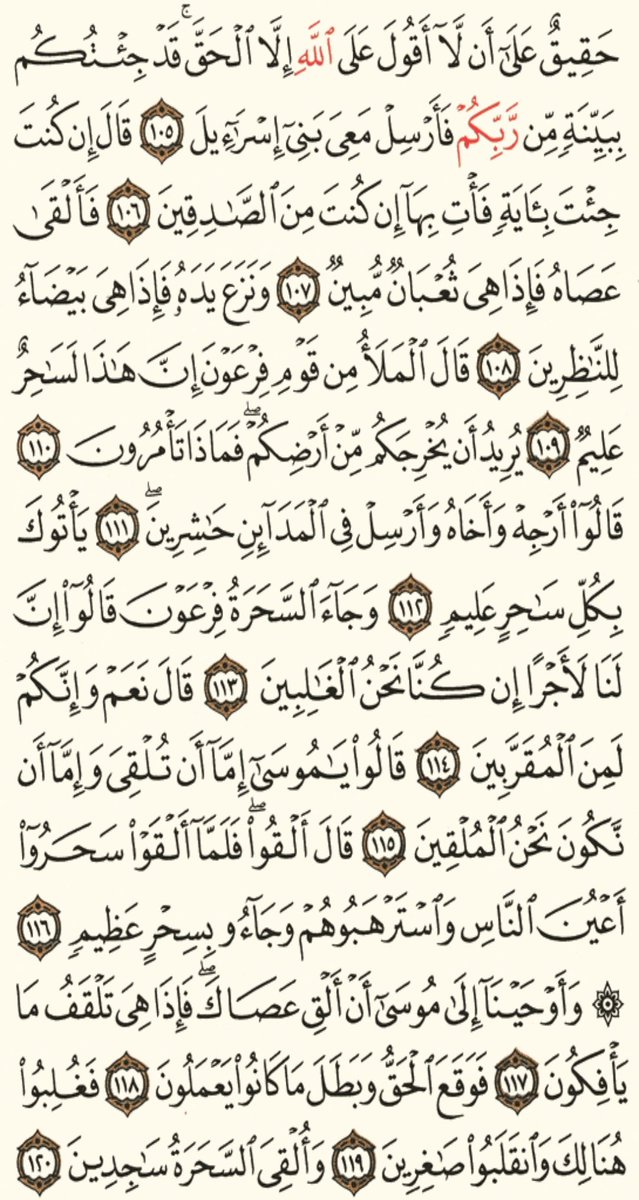 حَقِيقٌ عَلَىٰٓ أَن لَّآ أَقُولَ عَلَى ٱللَّهِ إِلَّا ٱلۡحَقَّۚ قَدۡ جِئۡتُكُم
بِبَيِّنَةٖ مِّن رَّبِّكُمۡ فَأَرۡسِلۡ مَعِيَ بَنِيٓ إِسۡرَٰٓءِيلَ ١٠٥ قَالَ إِن كُنتَ
جِئۡتَ بِـَٔايَةٖ فَأۡتِ بِهَآ إِن كُنتَ مِنَ ٱلصَّٰدِقِينَ ١٠٦ فَأَلۡقَىٰ
عَصَاهُ فَإِذَا هِيَ ثُعۡبَانٞ مُّبِينٞ ١٠٧ وَنَزَعَ يَدَهُۥ فَإِذَا هِيَ بَيۡضَآءُ
لِلنَّٰظِرِينَ ١٠٨ قَالَ ٱلۡمَلَأُ مِن قَوۡمِ فِرۡعَوۡنَ إِنَّ هَٰذَا لَسَٰحِرٌ
عَلِيمٞ ١٠٩ يُرِيدُ أَن يُخۡرِجَكُم مِّنۡ أَرۡضِكُمۡۖ فَمَاذَا تَأۡمُرُونَ ١١٠
قَالُوٓاْ أَرۡجِهۡ وَأَخَاهُ وَأَرۡسِلۡ فِي ٱلۡمَدَآئِنِ حَٰشِرِينَۖ ١١١ يَأۡتُوكَ
بِكُلِّ سَٰحِرٍ عَلِيمٖ ١١٢ وَجَآءَ ٱلسَّحَرَةُ فِرۡعَوۡنَ قَالُوٓاْ إِنَّ
لَنَا لَأَجۡرًا إِن كُنَّا نَحۡنُ ٱلۡغَٰلِبِينَ ١١٣ قَالَ نَعَمۡ وَإِنَّكُمۡ
لَمِنَ ٱلۡمُقَرَّبِينَ ١١٤ قَالُواْ يَٰمُوسَىٰٓ إِمَّآ أَن تُلۡقِيَ وَإِمَّآ أَن
نَّكُونَ نَحۡنُ ٱلۡمُلۡقِينَ ١١٥ قَالَ أَلۡقُواْۖ فَلَمَّآ أَلۡقَوۡاْ سَحَرُوٓاْ
أَعۡيُنَ ٱلنَّاسِ وَٱسۡتَرۡهَبُوهُمۡ وَجَآءُو بِسِحۡرٍ عَظِيمٖ ١١٦
۞ وَأَوۡحَيۡنَآ إِلَىٰ مُوسَىٰٓ أَنۡ أَلۡقِ عَصَاكَۖ فَإِذَا هِيَ تَلۡقَفُ مَا
يَأۡفِكُونَ ١١٧ فَوَقَعَ ٱلۡحَقُّ وَبَطَلَ مَا كَانُواْ يَعۡمَلُونَ ١١٨ فَغُلِبُواْ
هُنَالِكَ وَٱنقَلَبُواْ صَٰغِرِينَ ١١٩ وَأُلۡقِيَ ٱلسَّحَرَةُ سَٰجِدِينَ ١٢٠